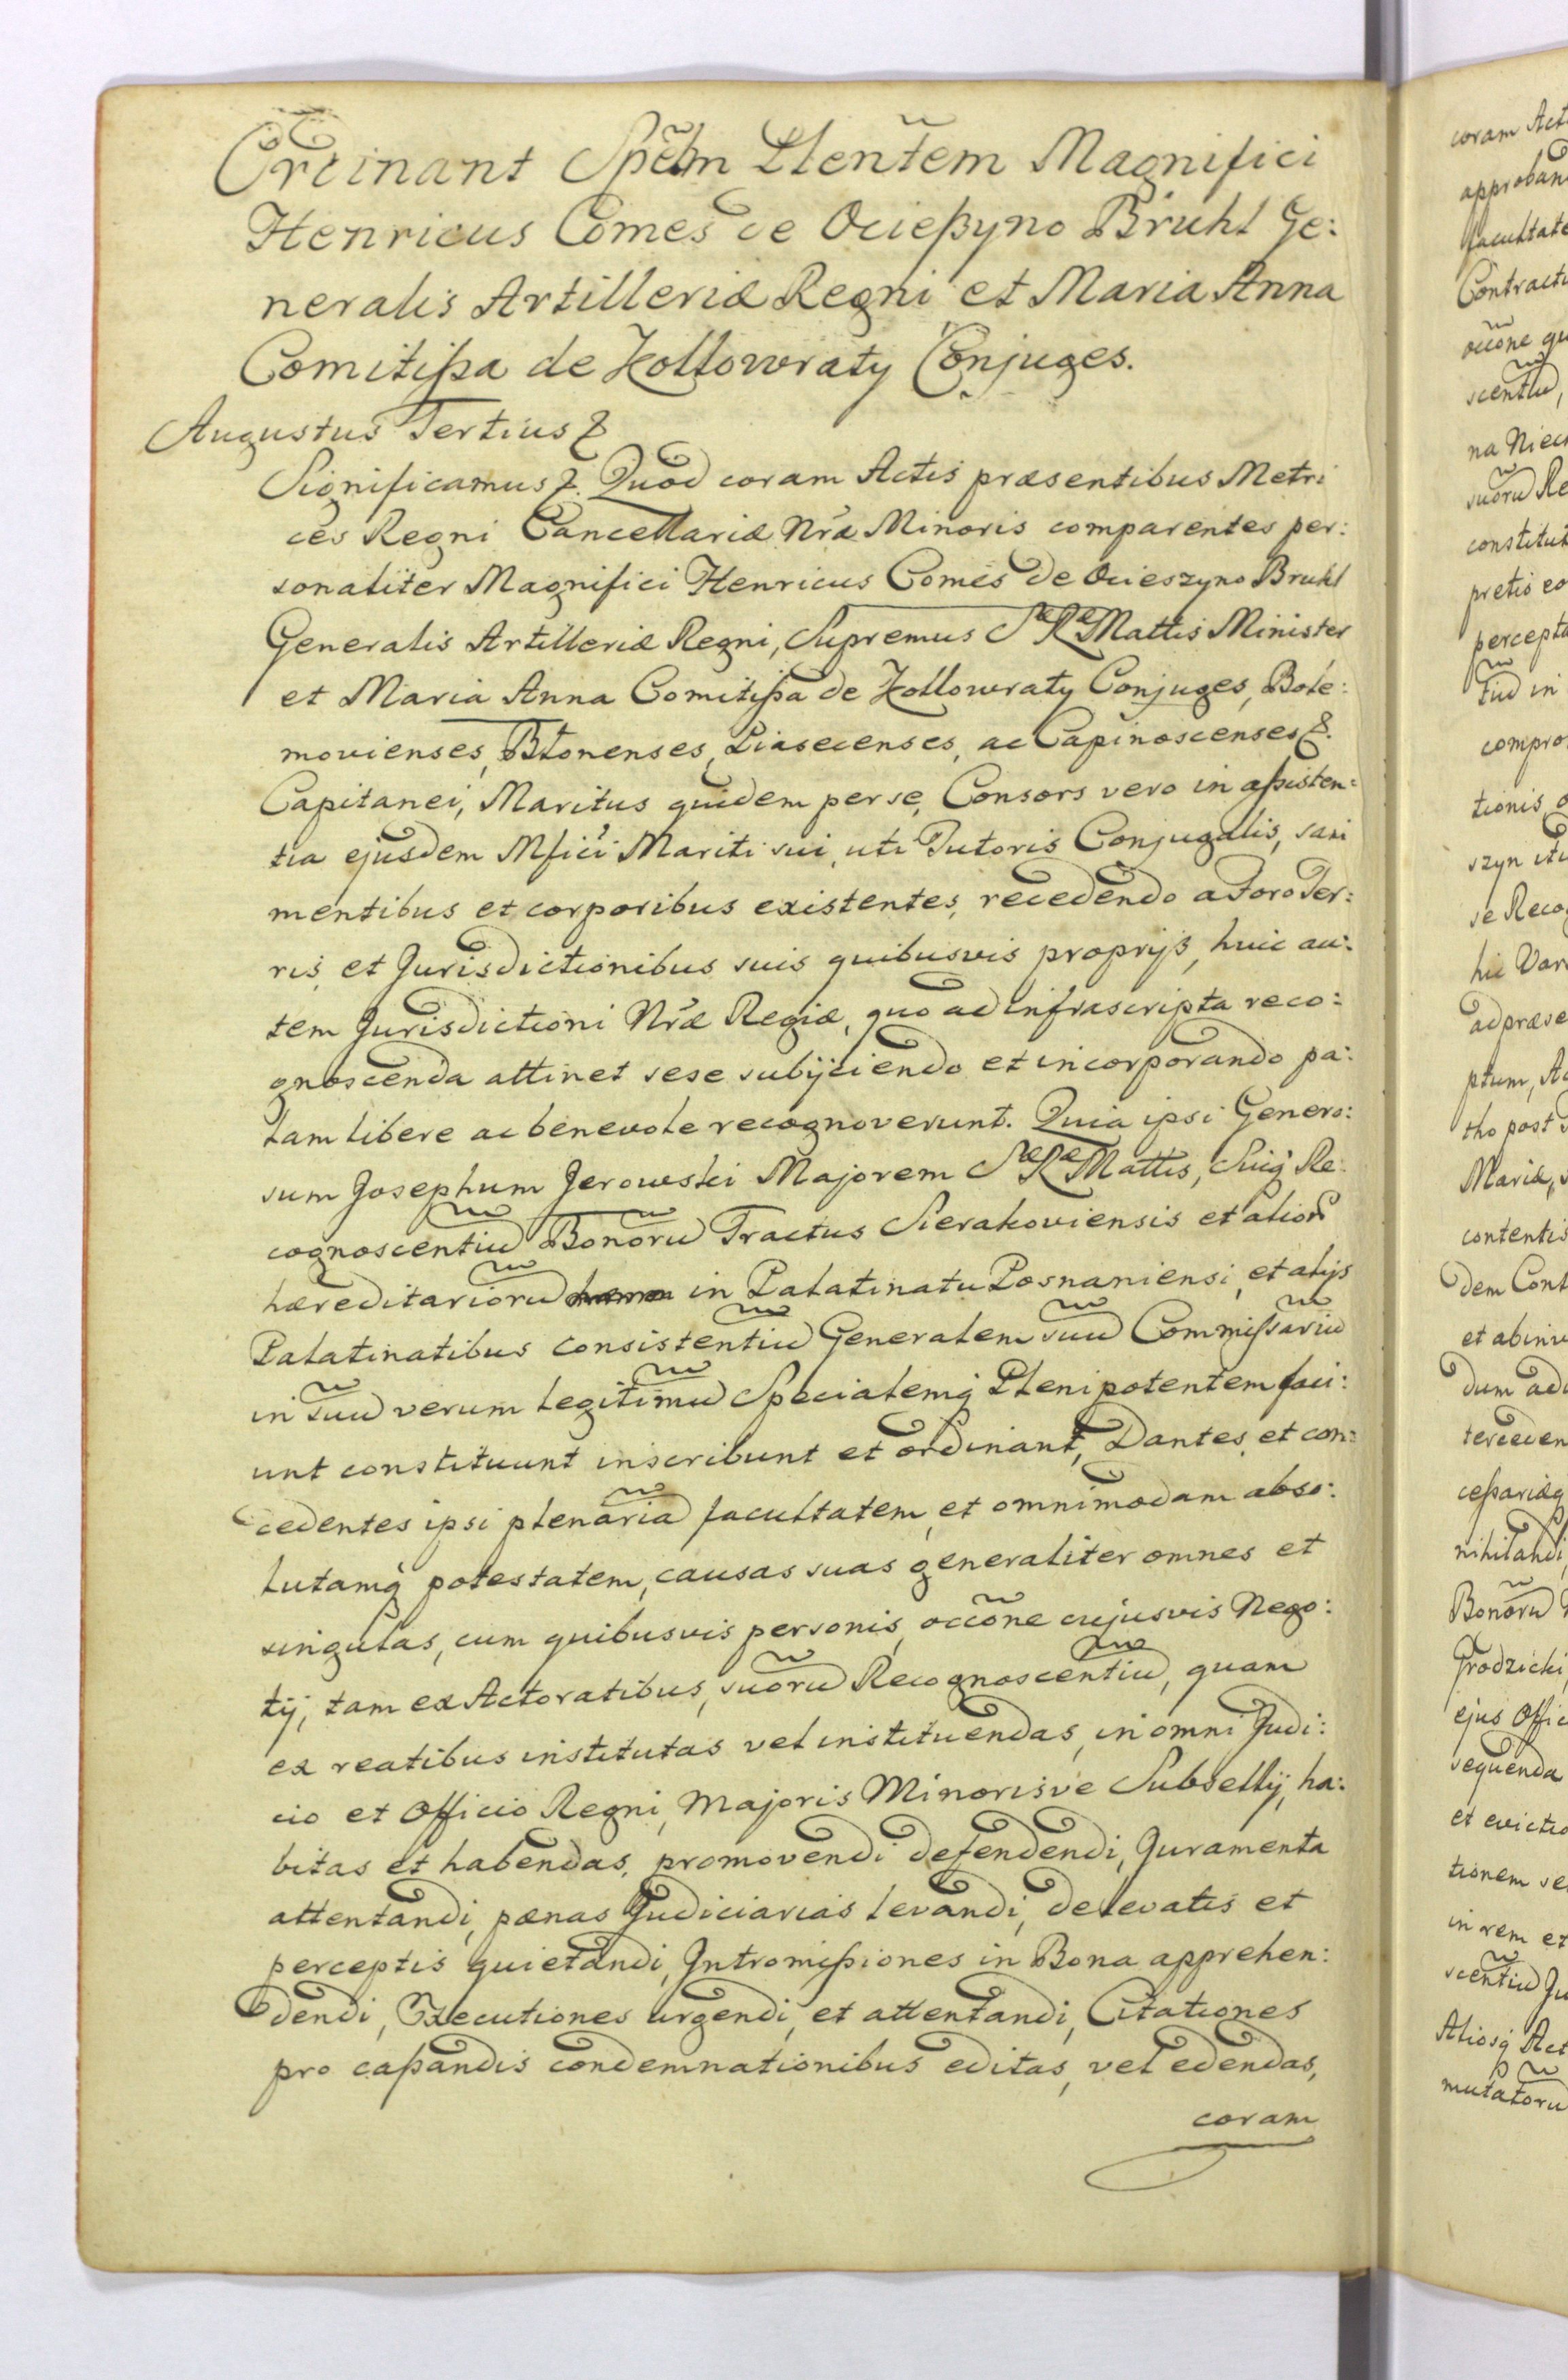 Ordinant Spẽlm Plentẽm Magnifici
Henricus Comes de Ocieszyno Bruhl Ge:
neralis Artilleriæ Regni et Maria Anna
Comitissa de Kollowraty Conjuges.
Augustus Tertius &
Significamus &. Quod coram Actis præsentibus Metri
ces Regni Cancellariæ Nræ Minoris comparentes per:
sonaliter Magnifici Henricus Comes de Ocieszyno Bruhl
Generalis Artilleriæ Regni, Supremus Sæ Ræ Mattis Minister
et Maria Anna Comitissa de Kollowraty Conjuges, Bole:
movienses, Btonenses, Piasecenses, ac Capinoscenses &.
Capitanei, Maritus quidem per se, Consors vero in assisten:
tia ejusdem Mfici Mariti sui, uti Tutoris Conjugalis, sani
mentibus et corporibus existentes, recedendo a Foro Ter:
ris, et Jurisdictionibus suis quibusvis proprijs, huic au:
tem Jurisdictioni Nræ Regiæ, quo ad infrascripta reco:
gnoscenda attinet sese subijciendo et incorporando pa:
lam libere ac benevole recognoverunt. Quia ipsi Genero:
sum Josephum Jerowski Majorem Sæ Ræ Mattis, Suiq Re
cognoscentiũ Bonorũ Tractus Sierakoviensis et alior
hæreditariorũ in Palatinatu Posnaniensi, et alijs
Palatinatibus consistentiũ Generalem suũ Commissariũ
in suũ verum legitimũ Specialemq Plenipotentem faci:
unt constituunt inscribunt et ordinant, Dantes et con:
cedentes ipsi plenariã facultatem, et omnimodam abso:
lutamq potestatem, causas suas generaliter omnes et
singulas, cum quibusvis personis, occõne cujusvis Nego:
tij, tam ex Actoratibus, suorũ Recognoscentiũ, quam
ex reatibus institutas vel instituendas, in omni Judi:
cio et Officio Regni, Majoris Minorisve Subsellij, ha:
bitas et habendas, promovendi defendendi, Juramenta
attentandi, pœnas Judiciarias levandi, de levatis et
perceptis quietandi, Intromissiones in Bona apprehen:
dendi, Executiones urgendi, et attentandi, Citationes
pro cassandis condemnationibus editas, vel edendas,
coram
coram Act
approban
facultate
Contractu
occõne qu
scentiũ,
na Niec
suorũ Re
constitut
pretio eo
percepta
tiũ in
compro
tionis
szyn
se Reco
hic Var
ad præse
ptum, Ac
tho post
Mariæ, s
contentis
dem Cont
et abinv
dum adi
terceden
cessariæq
nihilandi
Bonorũ
Grodzicki
ejus Offic
sequenda
et evictio
tionem se
in rem et
scentiũ Ju
Aliosq Act
mutatorũ